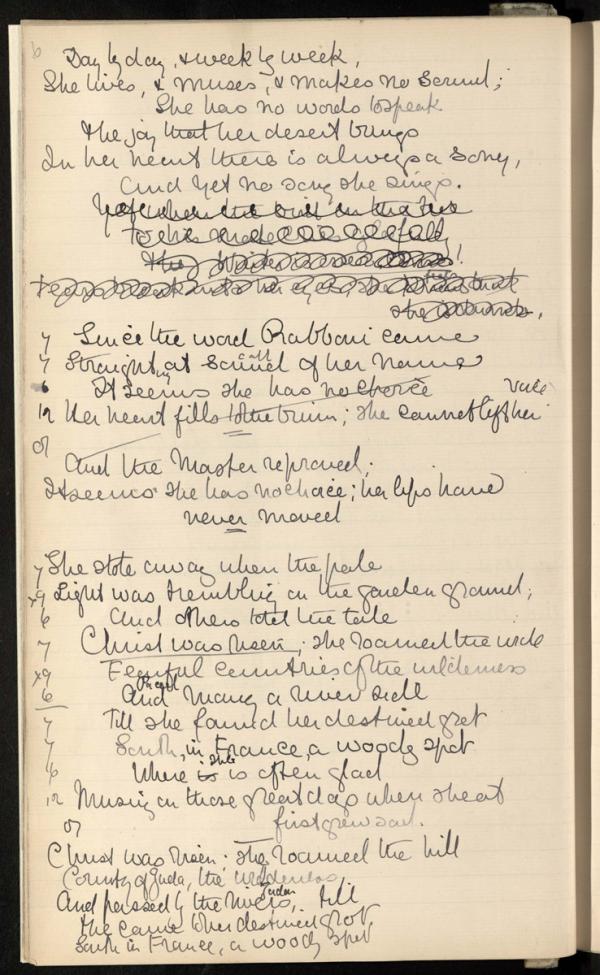 6
Day by day, & week by week,
She lives, & muses, & makes no sound;
She has no words to speak
The joy that her desert brings
In her heart there is always a song,
And yet no song she sings.
Yet when the
To
she
7 Since the word Rabboni came
7 Straight at sound call of her name
6 It seems she has no choice voice
12 Her heart fills to the brim; she cannot lift her
or
And the Master reproved;
It seems she has no choice; her lips have
never moved
7 She stole away when the pale
x9 Light was trembling on the garden ground;
6 And others told the tale
7 Christ was risen; she roamed the wide
x9 Fearful countries of the wilderness
6 And many a river side
7 Till she found her destined grot
7 South, in France, a woody spot
6 Where is she is often glad
12 Musing on those great days when she at
first grew sad.
or
Christ was risen. She roamed the hill
Country of Juda, the wilderness,
And passed by the rivers, till
She came to her destined grot,
South in France, a woody spot